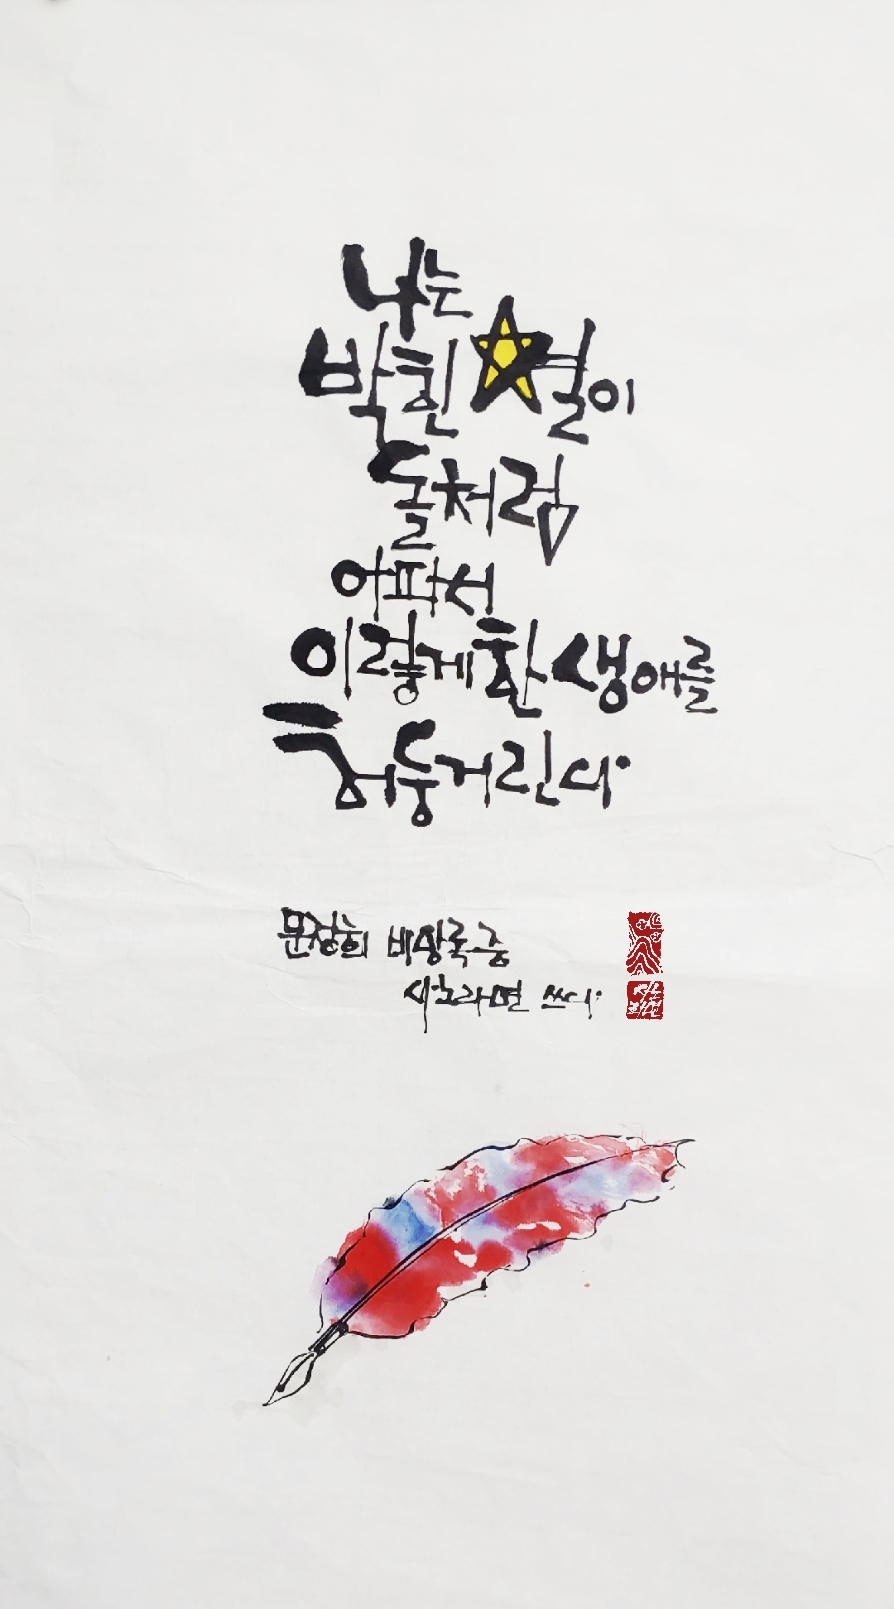 나는
박힌 별이
돌처럼
아파서
이렇게 한 생애를
허둥거린다.
문정희 비망록 중
사노라면 쓰다.